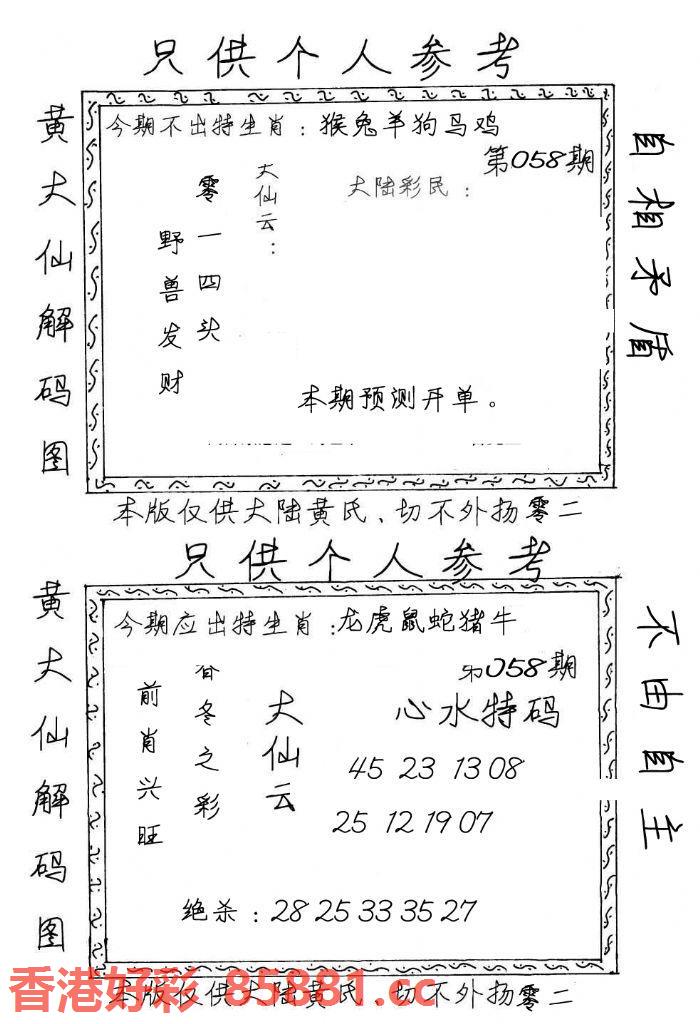 只供个人参考
黄大仙解码图
今期不出特生肖：猴兔羊狗马鸡
第058期
大仙云：
零一四头
野兽发财
大陆彩民：
本期预测开单。
自相矛盾
本版仅供大陆黄氏、切不外扬零二
只供个人参考
黄大仙解码图
今期应出特生肖：龙虎鼠蛇猪牛
第058期
大仙云
春冬之彩
前肖兴旺
心水特码
45 23 13 08
25 12 19 07
绝杀：28 25 33 35 27
不由自主
本版仅供大陆黄氏、切不外扬零二
香港好彩 85881.cc